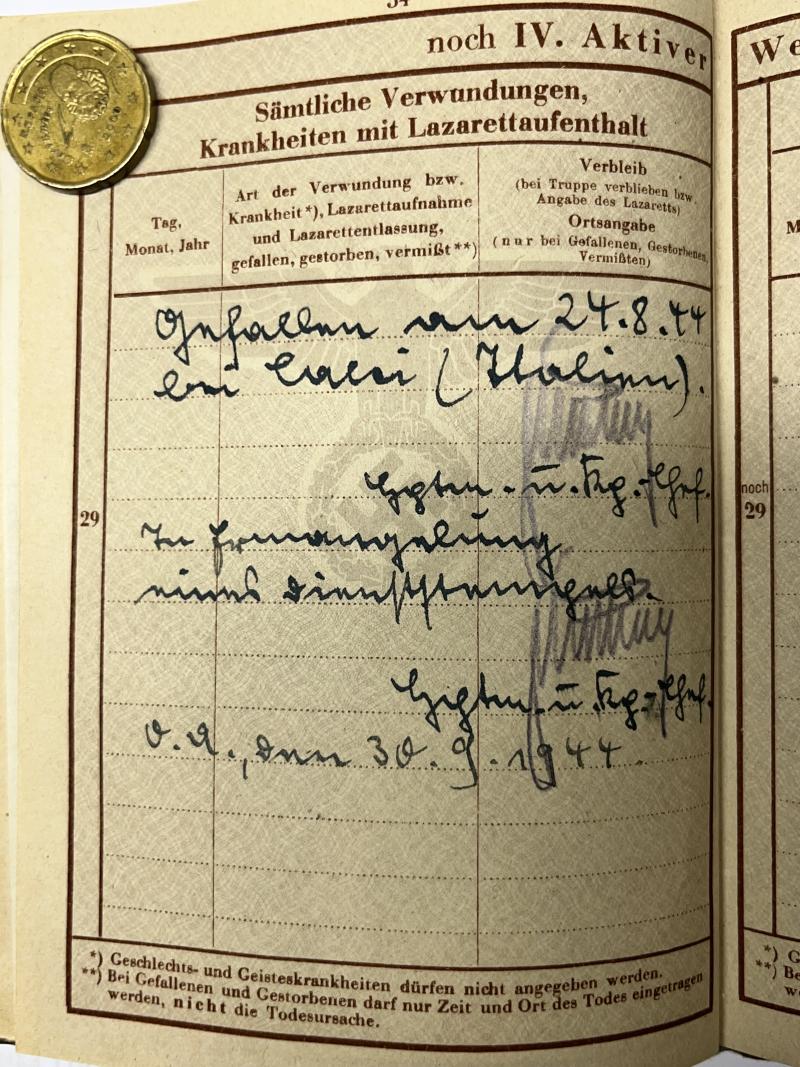 34
noch IV. Aktiver
Sämtliche Verwundungen,
Krankheiten mit Lazarettaufenthalt
Tag,
Monat, Jahr
Art der Verwundung bzw.
Krankheit*), Lazarettaufnahme
und Lazarettentlassung,
gefallen, gestorben, vermißt**)
Verbleib
(bei Truppe verblieben bzw.
Angabe des Lazaretts)
Ortsangabe
(nur bei Gefallenen, Gestorbenen,
Vermißten)
29
Gefallen am 24.8.44
bei Calci (Italien).
Hptm. u. Kp.-Chef.
In Ermangelung
eines Dienststempels.
Hptm. u. Kp.-Chef.
O.U., den 30.9.1944.
*) Geschlechts- und Geisteskrankheiten dürfen nicht angegeben werden.
**) Bei Gefallenen und Gestorbenen darf nur Zeit und Ort des Todes eingetragen
werden, nicht die Todesursache.
We
noch
29